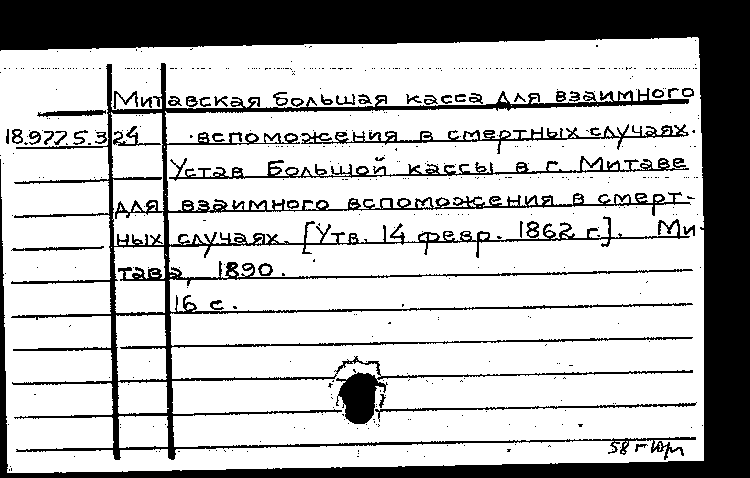 Митавская большая касса для взаимного
18.977.5.324 вспоможения в смертных случаях.
Устав Большой кассы в г. Митаве
для взаимного вспоможения в смерт-
ных случаях. [Утв. 14 февр. 1862 г.]. Ми-
тава, 1890.
16 с.